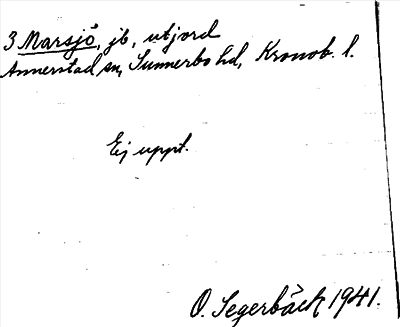 3 Marsjö, jb, utjord
Annerstad sn, Sunnerbo hd, Kronob. l.
Ej uppt.
O. Segerbäck 1941.